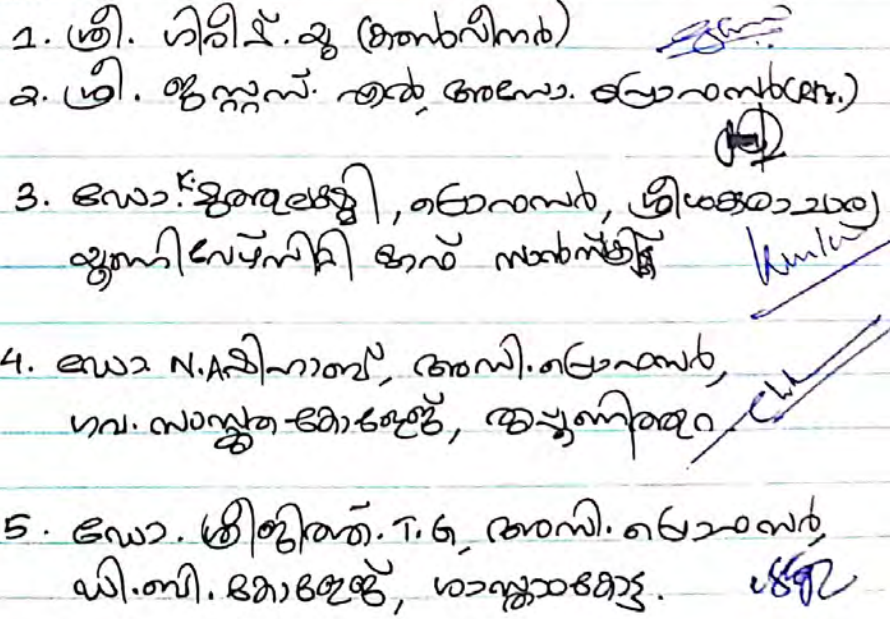 1. ശ്രീ. ഗിരീഷ്. യു (കൺവീനർ)
2. ശ്രീ. ജസ്റ്റസ്. എൽ, അസോ. പ്രൊഫസർ(ലത്തീ.)
3. ഡോ. K. മുത്തുലക്ഷ്മി, പ്രൊഫസർ, ശ്രീശങ്കരാചാര്യ
യൂണിവേഴ്സിറ്റി ഓഫ് സാൻസ്ക്രിറ്റ്
4. ഡോ. N.A ഷിഹാബ്, അസി. പ്രൊഫസർ,
ഗവ. സംസ്കൃത കോളേജ്, തൃപ്പൂണിത്തുറ
5. ഡോ. ശ്രീജിത്ത്. T. G, അസി. പ്രൊഫസർ,
ഡി.ബി. കോളേജ്, ശാസ്താംകോട്ട.